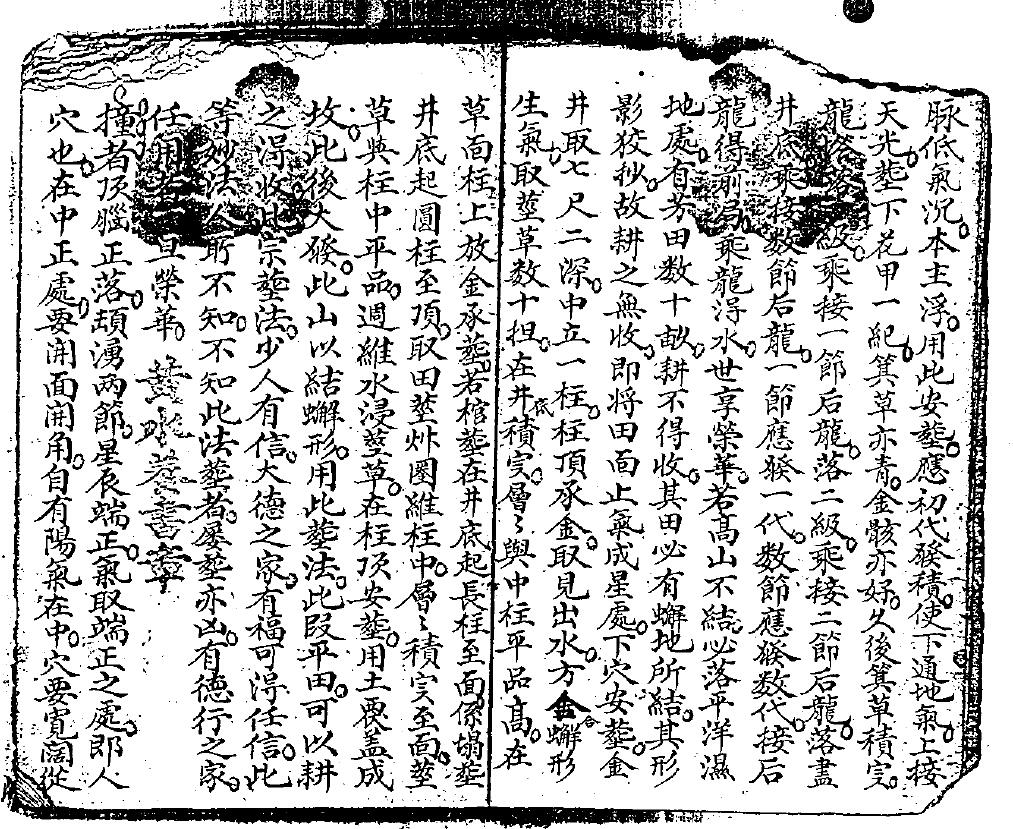 脉低氣沉本主浮用此安塟應初代發積使下通地氣上接
天光塟下花甲一紀箕草亦青金骸亦好久後箕草積宲
龍落一級乘接一節后龍落二級乘接二節后龍落盡
井底乘接数節后龍一節應發一代数節應發数代接后
龍得前局乘龍淂水世享榮華若高山不結必落平洋濕
地處有芳田数十畝耕不得收其田必有蠏地所結其形
影狡抄故耕之無收即将田面止氣成星處下穴安塟金
井取七尺二深中立一柱柱頂承金取見出水方金蠏形
生氣取莖草数十担在井底積宲層〻與中柱平品高在
草面柱上放金承塟若棺塟在井底起長柱至面係塌塟
井底起圓柱至頂取田莖艸圏維柱中層〻積宲至面莖
草與柱中平品週維水浸莖草在柱顶安塟用土喪盖成
坟此後大發此山以結蠏形用此塟法此段平田可以耕
之淂收此宗塟法少人有信大德之家有福可淂任信此
等妙法人所不知不知此法塟者屡塟亦凶有德行之家
任用旦榮華
撞者顶腦正落頏湧两節星辰端正氣取端正之處即人
穴也在中正處要開面開角自有陽氣在中穴要寬濶從